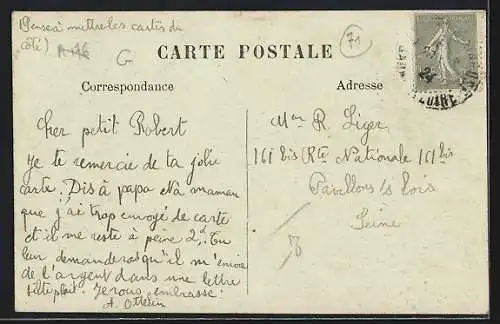 (Pense à mettre les cartes du
côté)
G
71
CARTE POSTALE
Correspondance
Adresse
LOIRE
Cher petit Robert
Je te remercie de ta jolie
carte. Dis à papa et à maman
que j'ai trop envoyé de carte
et il me reste à peine 2d. Tu
leur demanderas qu'il m'envoie
de l'argent dans une lettre
s'il te plait. Je vous embrasse.
A.
Mr R. Liger
161 bis Rte Nationale 161 bis
Pavillons s/s Bois
Seine